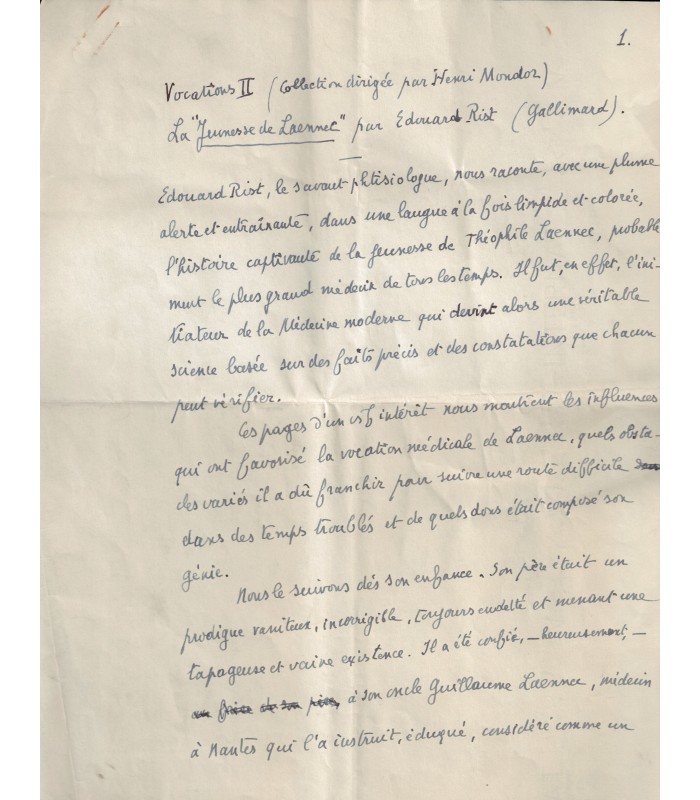 1.
Vocations II (Collection dirigée par Henri Mondor)
La "Jeunesse de Laennec" par Edouard Rist (Gallimard).
Edouard Rist, le savant phtisiologue, nous raconte, avec une plume
alerte et entraînante, dans une langue à la fois limpide et colorée,
l'histoire captivante de la jeunesse de Théophile Laennec, probable
ment le plus grand médecin de tous les temps. Il fut, en effet, l'ini-
tiateur de la Médecine moderne qui devint alors une véritable
science basée sur des faits précis et des constatations que chacun
peut vérifier.
Ces pages d'un vif intérêt nous montrent les influences
qui ont favorisé la vocation médicale de Laennec, quels obsta-
cles variés il a dû franchir pour suivre une route difficile
dans des temps troublés et de quels dons était composé son
génie.
Nous le suivons dès son enfance. Son père était un
prodigue vaniteux, incorrigible, toujours endetté et menant une
tapageuse et vaine existence. Il a été confié, – heureusement, –
à son oncle Guillaume Laennec, médecin
à Nantes qui l'a instruit, éduqué, considéré comme un